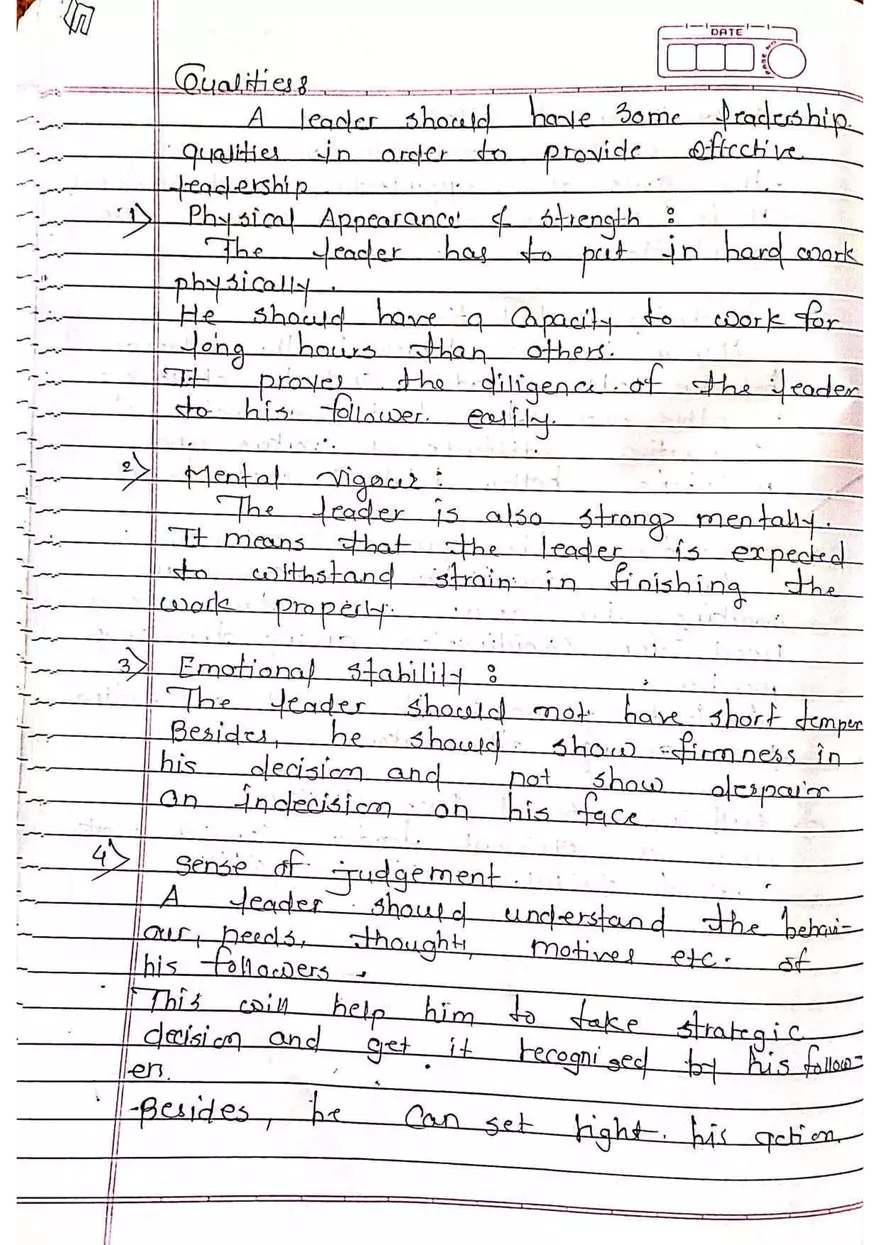 DATE
PAGE NO
Qualities :
A leader should have some leadership
qualities in order to provide effective
leadership
1) Physical Appearance & strength :
The leader has to put in hard work
physically.
He should have a Capacity to work for
long hours than others.
It proves the diligence of the leader
to his follower easily.
2) Mental vigour :
The leader is also strong mentally.
It means that the leader is expected
to withstand strain in finishing the
work properly.
3) Emotional stability :
The leader should not have short temper
Besides, he should show firmness in
his decision and not show despair
an indecision on his face
4) sense of judgement.
A leader should understand the behavi-
our, needs, thought, motives etc. of
his followers.
This will help him to take strategic
decision and get it recognised by his follow-
er.
-Besides, he can set right his action